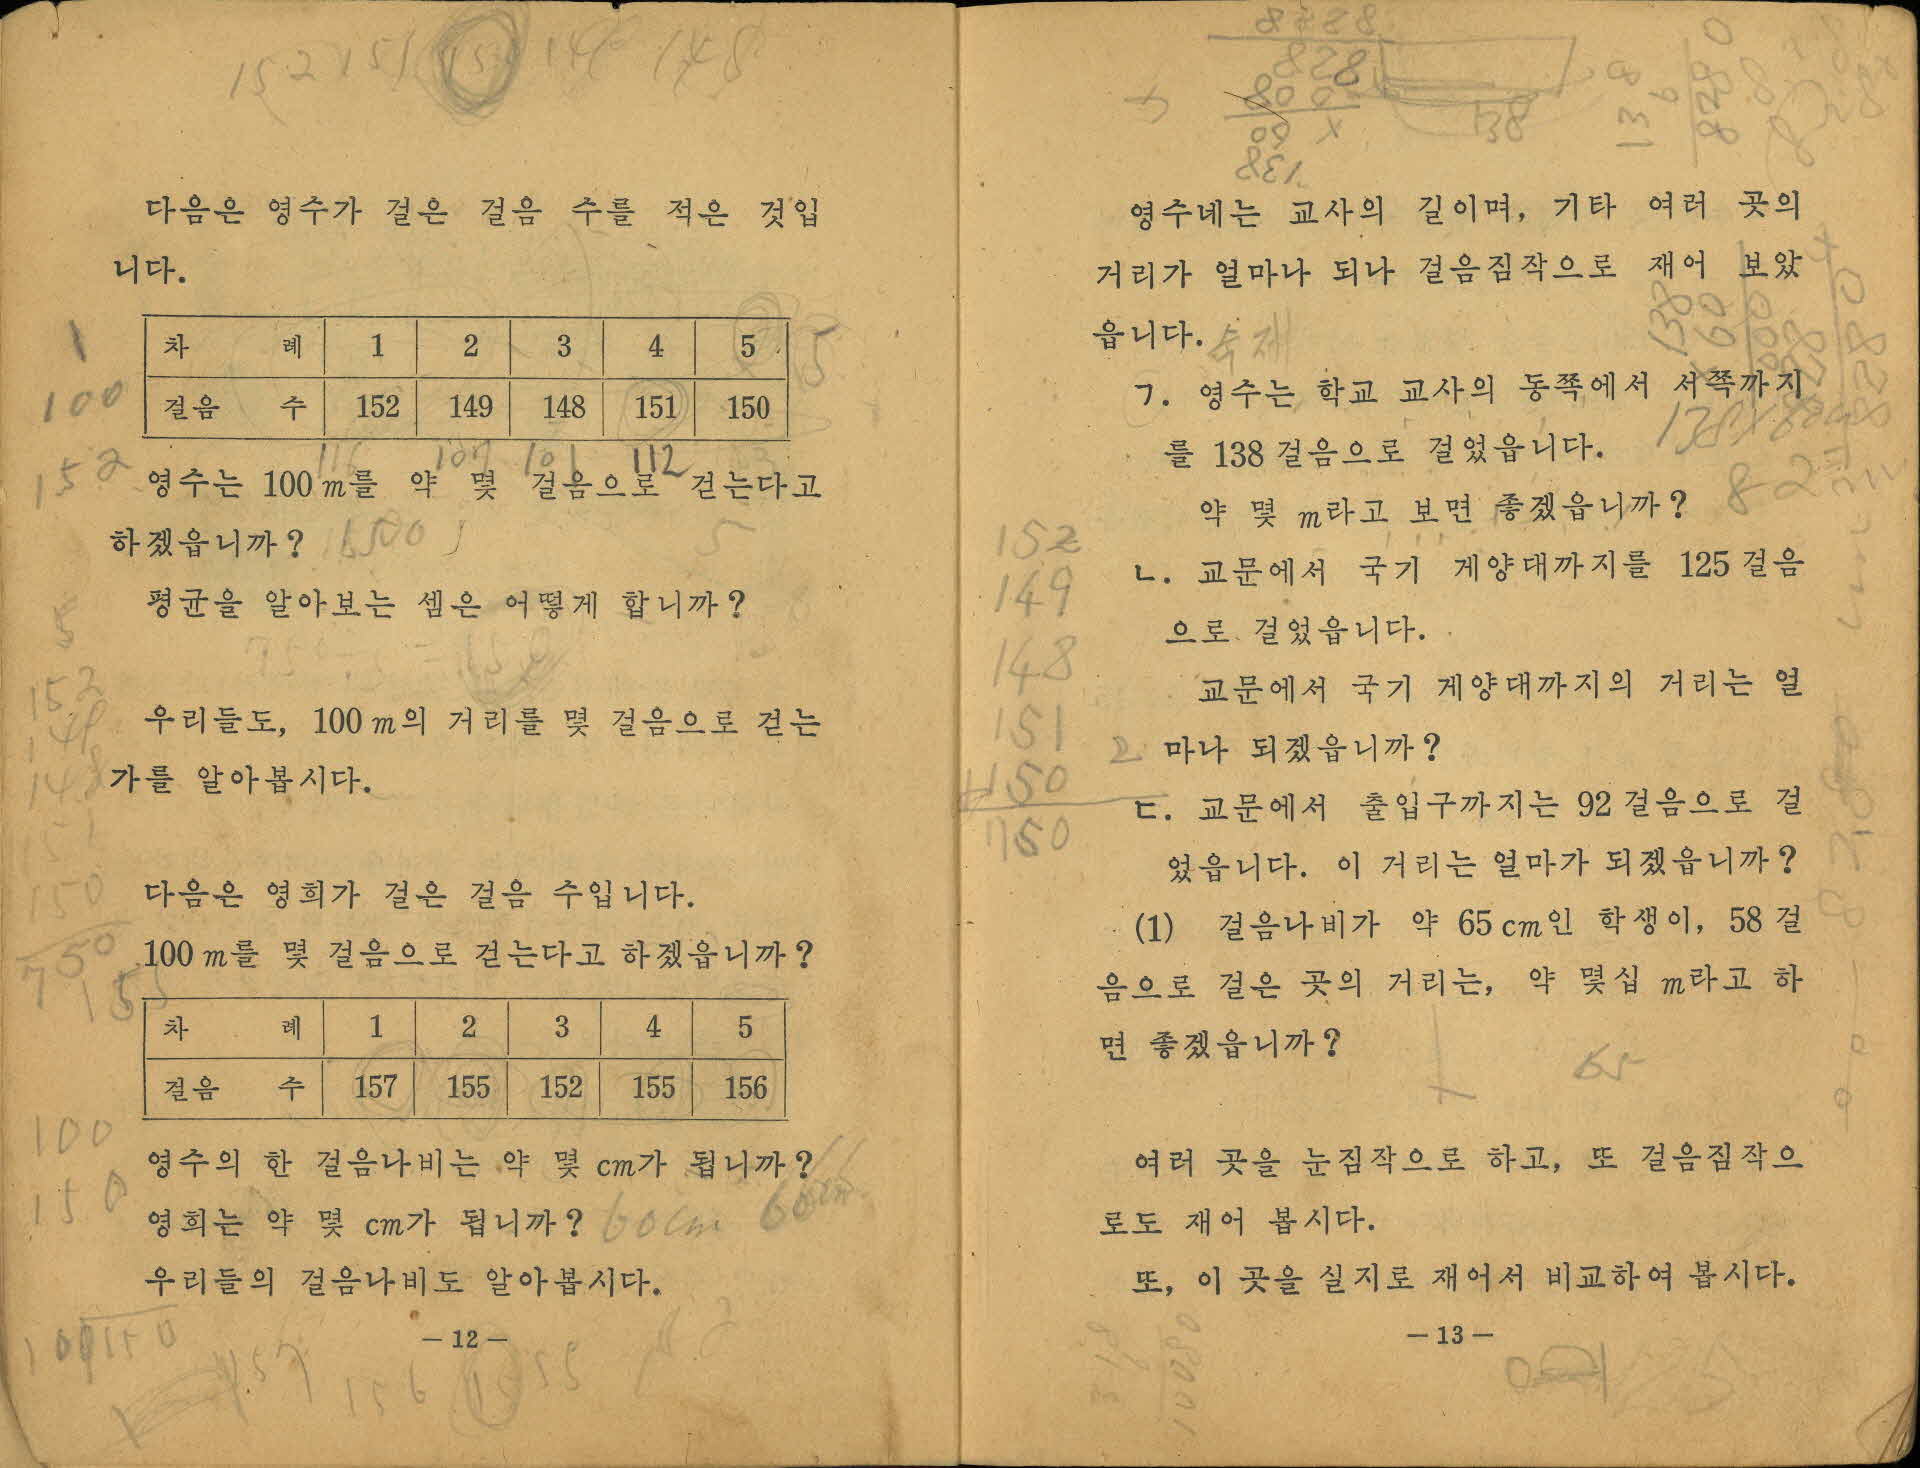 152 151 150 149 148
다음은 영수가 걸은 걸음 수를 적은 것입
니다.
차 례 1 2 3 4 5
걸음 수 152 149 148 151 150
1
100
152
116 107 101 112
영수는 100 m를 약 몇 걸음으로 걷는다고
하겠읍니까?
평균을 알아보는 셈은 어떻게 합니까?
우리들도, 100 m의 거리를 몇 걸음으로 걷는
가를 알아봅시다.
5
152
149
148
151
150
750
다음은 영희가 걸은 걸음 수입니다.
100 m를 몇 걸음으로 걷는다고 하겠읍니까?
차 례 1 2 3 4 5
걸음 수 157 155 152 155 156
영수의 한 걸음나비는 약 몇 cm가 됩니까?
영희는 약 몇 cm가 됩니까? 60cm
우리들의 걸음나비도 알아봅시다.
100
150
— 12 —
138
영수네는 교사의 길이며, 기타 여러 곳의
거리가 얼마나 되나 걸음짐작으로 재어 보았
읍니다. 숙제
ㄱ. 영수는 학교 교사의 동쪽에서 서쪽까지
를 138 걸음으로 걸었읍니다.
약 몇 m라고 보면 좋겠읍니까?
ㄴ. 교문에서 국기 게양대까지를 125 걸음
으로 걸었읍니다.
교문에서 국기 게양대까지의 거리는 얼
마나 되겠읍니까?
ㄷ. 교문에서 출입구까지는 92 걸음으로 걸
었읍니다. 이 거리는 얼마가 되겠읍니까?
152
149
148
151
+150
750
(1) 걸음나비가 약 65 cm인 학생이, 58 걸
음으로 걸은 곳의 거리는, 약 몇십 m라고 하
면 좋겠읍니까?
65
여러 곳을 눈짐작으로 하고, 또 걸음짐작으
로도 재어 봅시다.
또, 이 곳을 실지로 재어서 비교하여 봅시다.
— 13 —